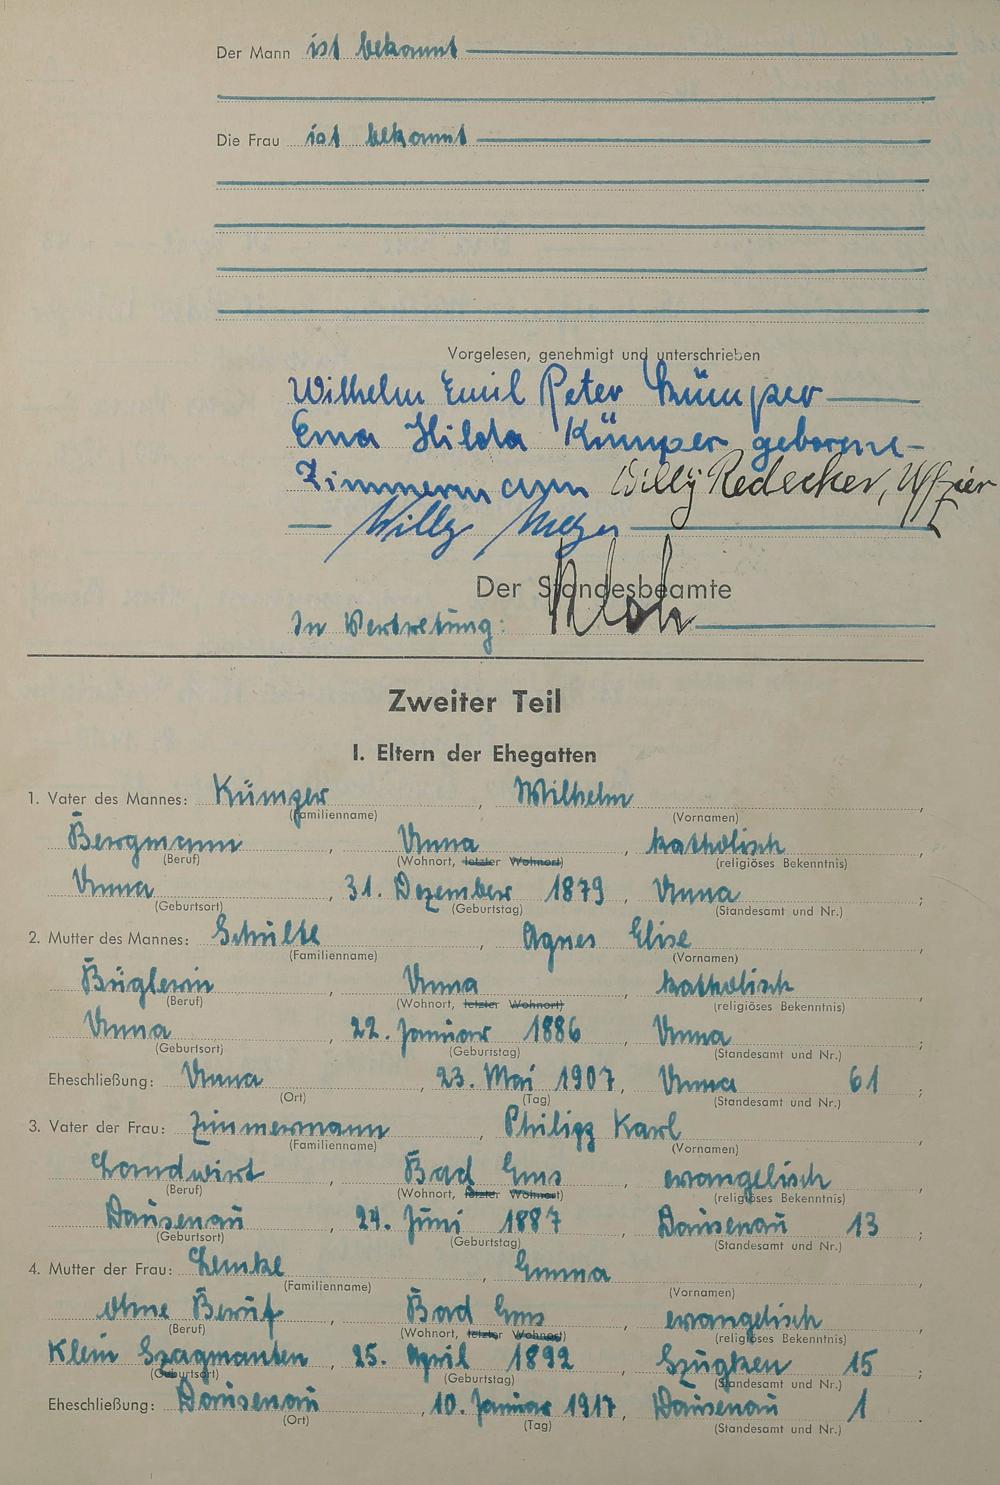 Der Mann ist bekannt
Die Frau ist bekannt
Vorgelesen, genehmigt und unterschrieben
Wilhelm Emil Peter Kümper
Erna Hilda Kümper geborene
Zimmermann Willy Redecker, Uffzier
Willy Meyer
Der Standesbeamte
In Vertretung:
Zweiter Teil
I. Eltern der Ehegatten
1. Vater des Mannes: Kümper, Wilhelm,
(Familienname) (Vornamen)
Bergmann, Unna, katholisch
(Beruf) (Wohnort, letzter Wohnort) (religiöses Bekenntnis)
Unna, 31. Dezember 1879, Unna;
(Geburtsort) (Geburtstag) (Standesamt und Nr.)
2. Mutter des Mannes: Schulte, Agnes Elise,
(Familienname) (Vornamen)
Büglerin, Unna, katholisch
(Beruf) (Wohnort, letzter Wohnort) (religiöses Bekenntnis)
Unna, 22. Januar 1886, Unna;
(Geburtsort) (Geburtstag) (Standesamt und Nr.)
Eheschließung: Unna, 23. Mai 1907, Unna 61;
(Ort) (Tag) (Standesamt und Nr.)
3. Vater der Frau: Zimmermann, Philipp Karl,
(Familienname) (Vornamen)
Landwirt, Bad Ems, evangelisch
(Beruf) (Wohnort, letzter Wohnort) (religiöses Bekenntnis)
Dausenau, 24. Juni 1887, Dausenau 13;
(Geburtsort) (Geburtstag) (Standesamt und Nr.)
4. Mutter der Frau: Lemke, Emma,
(Familienname) (Vornamen)
ohne Beruf, Bad Ems, evangelisch
(Beruf) (Wohnort, letzter Wohnort) (religiöses Bekenntnis)
Klein Szagmanten, 25. April 1892, Szugken 15;
(Geburtsort) (Geburtstag) (Standesamt und Nr.)
Eheschließung: Dausenau, 10. Januar 1917, Dausenau 1;
(Ort) (Tag) (Standesamt und Nr.)